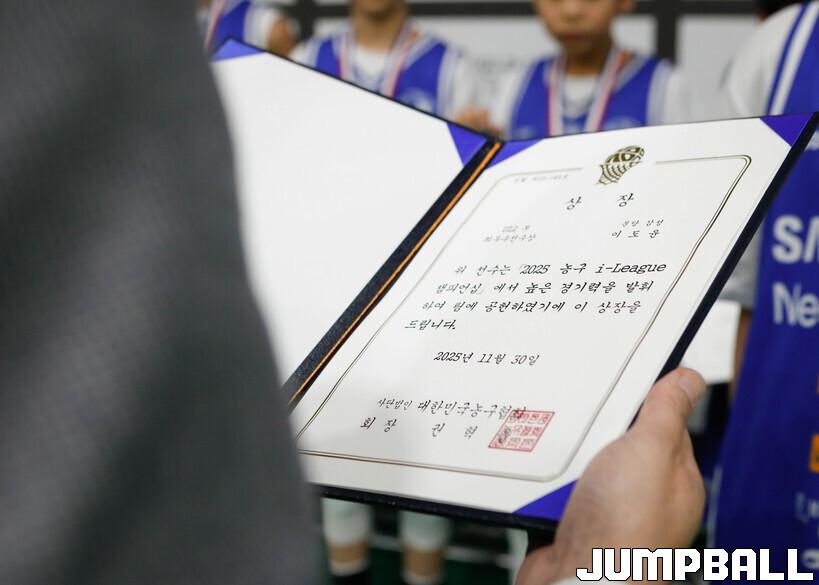 상 장
최우수선수상
분당 삼성
이 도 윤
위 선수는 「2025 농구 i-League
챔피언십」에서 높은 경기력을 발휘
하여 팀에 공헌하였기에 이 상장을
드립니다.
2025년 11월 30일
사단법인 대한민국농구협회
회 장 권 혁
SA
Ne
JUMPBALL